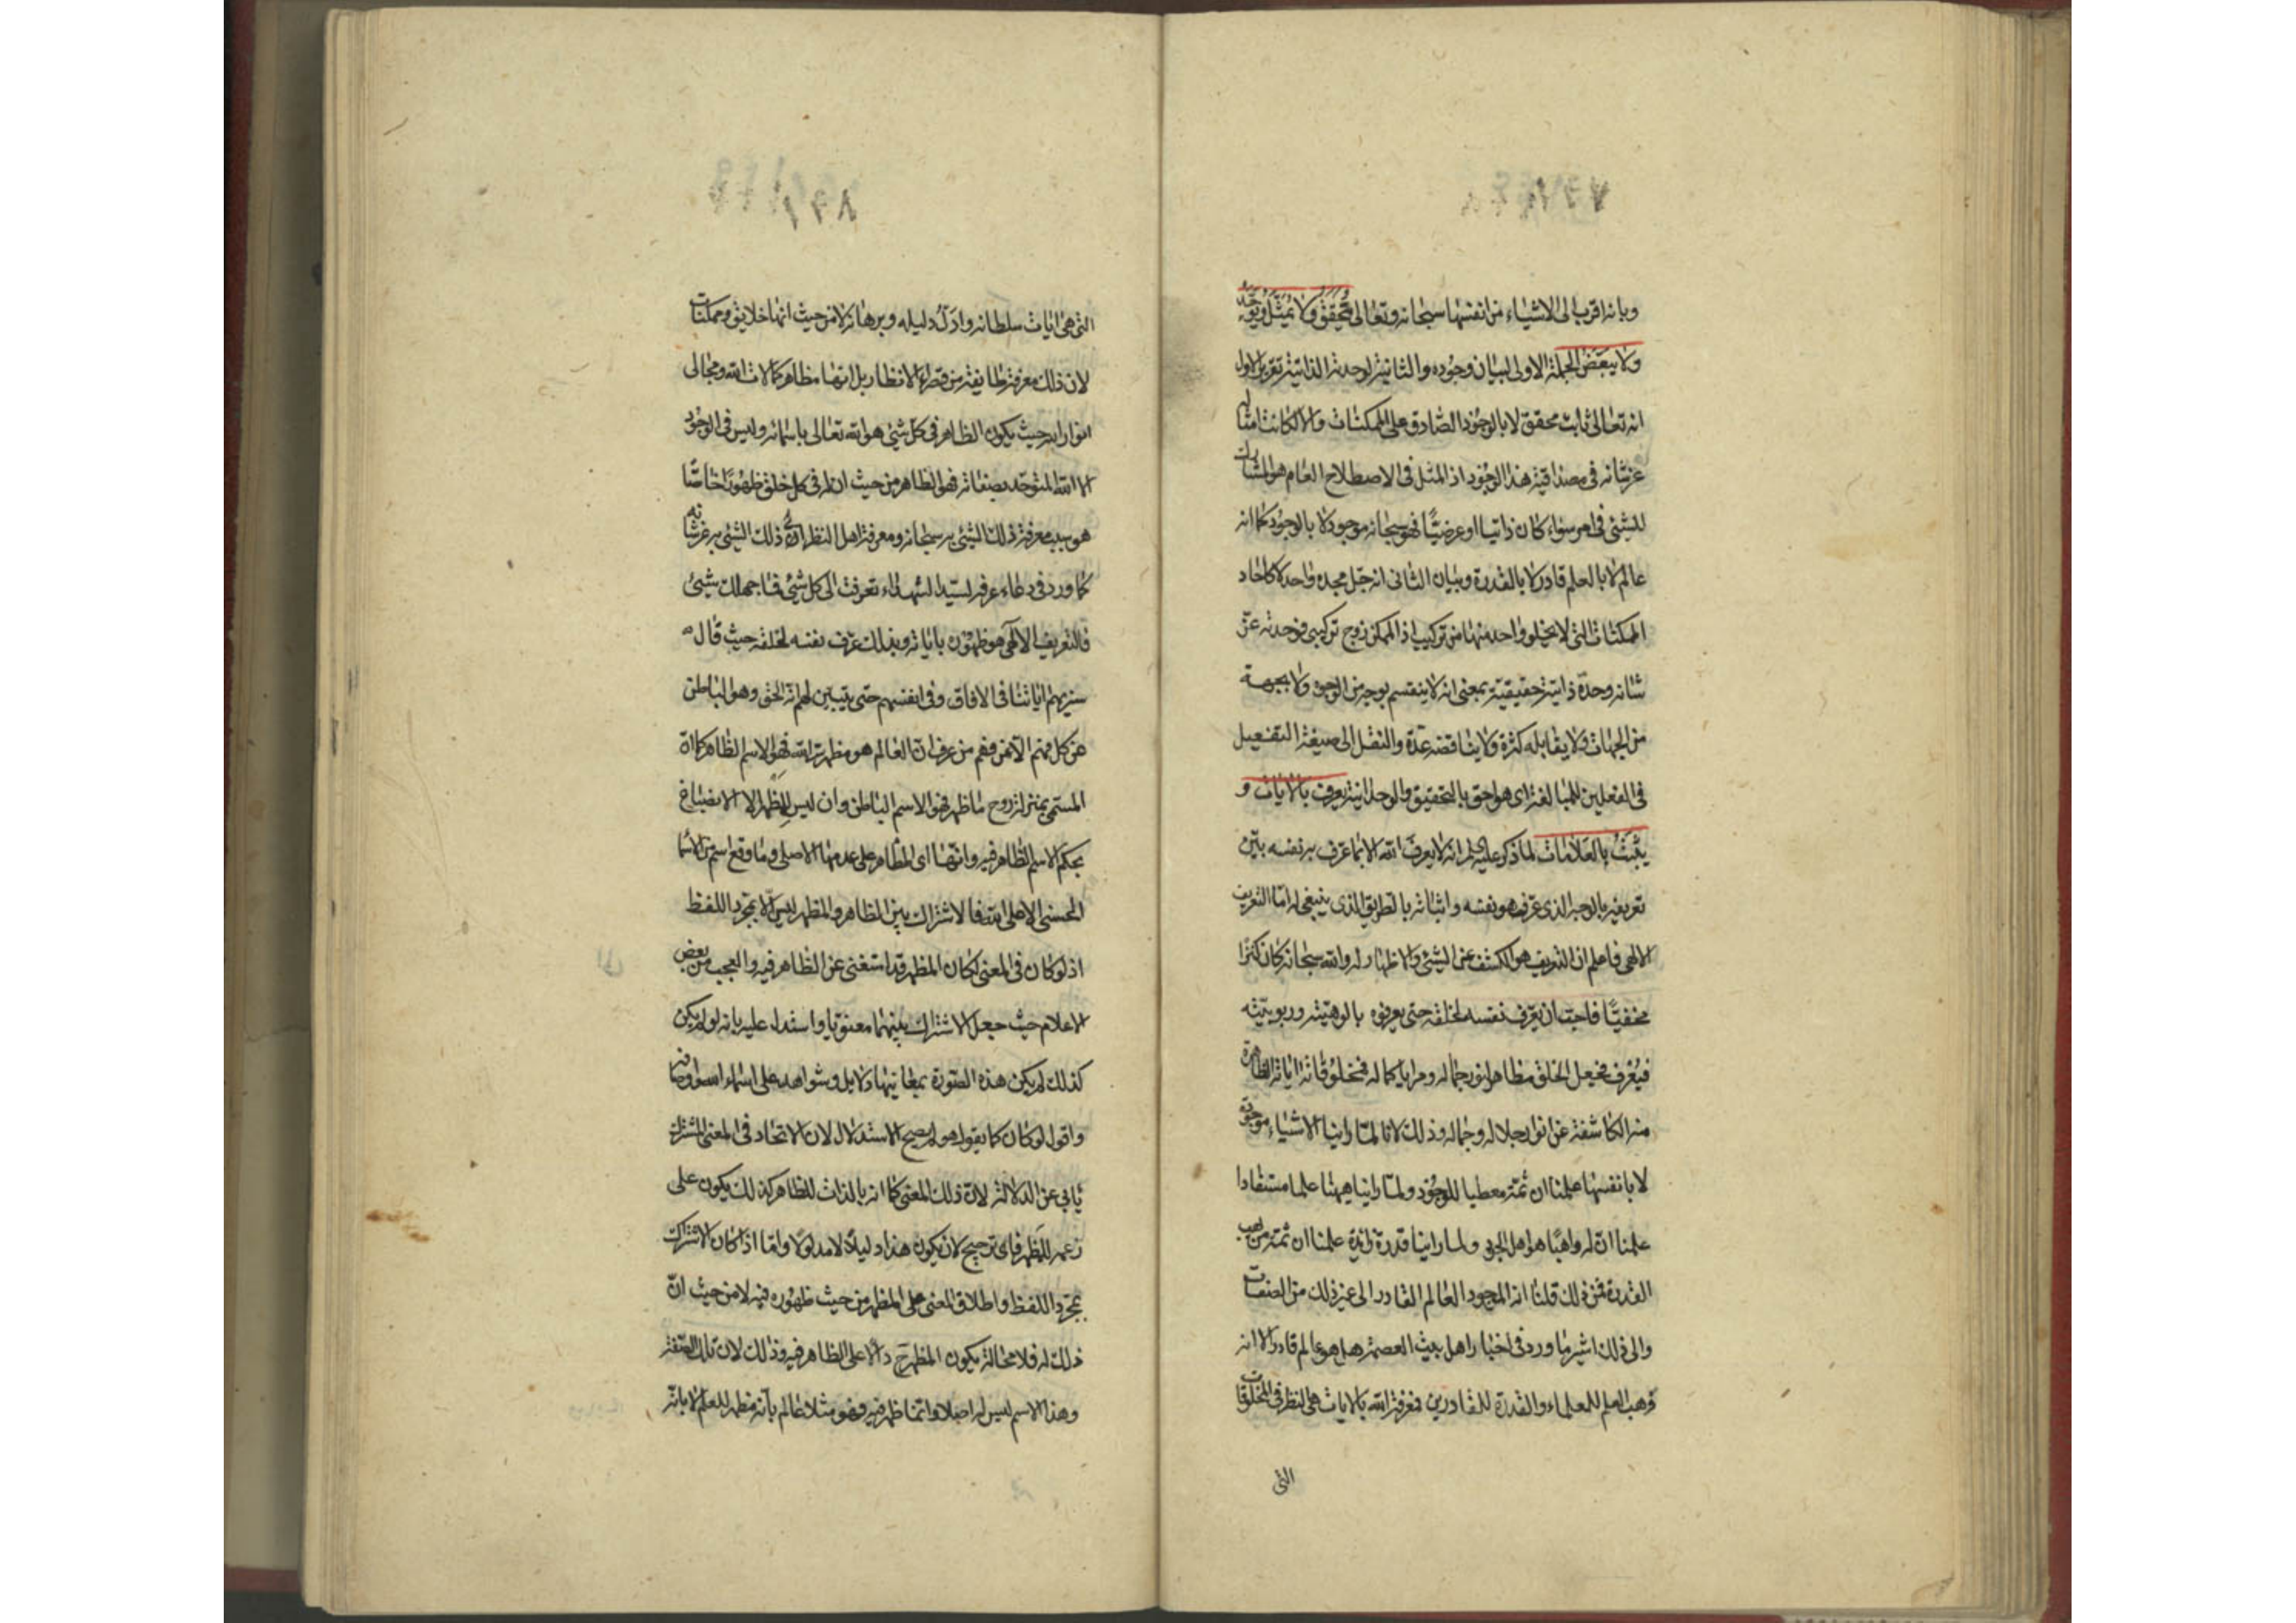 وبانه اقرب الى الاشياء من انفسها سبحانه وتعالى فيحقق ولا يمثل ويوحد
ولا يبعض الجملة الاولى لبيان وجوده والثانية لوحدته الذاتية تقرير الاول
انه تعالى ثابت محقق لا بالوجود الصادق على الممكنات والا لكانت امثاله
عز شانه في مصداقية هذا الوجود اذ المثل في الاصطلاح العام هو المشارك
للشئ في امر سواء كان ذاتيا او عرضيا فهو سبحانه موجود لا بالوجود كما انه
عالم لا بالعلم قادر لا بالقدرة وبيان الثاني انه جل مجده واحد لا كاحاد
الممكنات التي لا يخلو واحد منها من تركيب اذ الممكن زوج تركيبي فوحدته عز
شانه وحدة ذاتية حقيقية بمعنى انه لا ينقسم بوجه من الوجوه ولا بجهة
من الجهات ولا يقابله كثرة ولا يناقضه عدة والنقل الى صيغة التفعيل
في الفعلين للمبالغة اى هو احق بالتحقيق والوحدانية يعرف بالايات و
يثبت بالعلامات لما ذكر عليه السلم انه لا يعرف الله الا بما عرف به نفسه بين
تعريفه بالوجه الذى عرف هو نفسه واثباته بالطريق الذى ينبغي له اما التعريف
الالهى فاعلم ان التعريف هو الكشف عن الشئ والاظهار له والله سبحانه كان كنزا
مخفيا فاحب ان يعرف نفسه لخلقه حتى يعرفوه بالوهيته وربوبيته
فيعرف فجعل الخلق مظاهر نور جماله ومرايا كماله فمخلوقاته اياته الظاهرة
منه الكاشفة عن انوار جلاله وجماله وذلك لانا لما راينا الاشياء موجودة
لا بانفسها علمنا ان ثمة معطيا للوجود ولما راينا هيهنا علما مستفادا
علمنا ان له واهبا هو اهل الجود ولما راينا قدرة زائدة علمنا ان ثمة من يهب
القدرة فمن ذلك قلنا انه الموجود العالم القادر الى غير ذلك من الصفات
والى ذلك اشير ما ورد في اخبار اهل بيت العصمة هل هو عالم قادر الا انه
وهب العلم للعلماء والقدرة للقادرين فمعرفة الله بالايات هى النظر في المخلوقات
التى
التى هى ايات سلطانه وادل دليله وبرهانه لا من حيث انها خلايق وممكنات
لان ذلك معرفة طايفة من قصراء الانظار بل انها مظاهر كمالات الله ومجالى
انواره بحيث يكون الظاهر في كل شئ هو الله تعالى باسمائه وليس في الوجود
الا الله المتوحد بصفاته فهو الظاهر من حيث ان له في كل خلق ظهورا خاصا
هو سبب معرفة ذلك الشئ به سبحانه ومعرفة اهل النظر ذلك الشئ به عز شانه
كما ورد في دعاء عرفة لسيد الشهداء تعرفت الى كل شئ فما جهلك شيئ
فالتعريف الالهى هو ظهوره باياته وبذلك عرف نفسه لخلقه حيث قال
سنريهم اياتنا في الافاق وفي انفسهم حتى يتبين لهم انه الحق وهو الباطن
عن كل فهم الا عن فهم من عرف ان العالم هو مظهر الله فهو الاسم الظاهر كما ان
المسمى بمنزلة روح ما ظهر فهو الاسم الباطن وان ليس للمظهر الا الانصباغ
بحكم الاسم الظاهر فيه وانها اى المظاهر على عدمها الاصلى وما وقع اسم من الاسماء
الحسنى الا على الله فالاشتراك بين الظاهر والمظهر ليس الا بمجرد اللفظ
اذ لو كان في المعنى لكان المظهر قد استغنى عن الظاهر فيه والعجب من بعض
الاعلام حيث جعل الاشتراك بينهما معنويا واستدل عليه بانه لو لم يكن
كذلك لم يكن هذه الصورة بمعانيها دلايل وشواهد على اسماء الله وصفاته
واقول لو كان كما يقول هو لم يصح الاستدلال لان الاتحاد في المعنى المشترك
يابى عن الدلالة لان ذلك المعنى كما انه بالذات للظاهر كذلك يكون على
زعمه للمظهر فاى ترجيح لان يكون هذا دليلا لا مدلولا واما اذا كان الاشتراك
بمجرد اللفظ واطلاق المعنى على المظهر من حيث ظهوره فيه لا من حيث ان
ذلك له فلا محالة يكون المظهر ح دالا على الظاهر فيه وذلك لان تلك الصفة
وهذا الاسم ليس له اصلا وانما ظهر فيه فهو مثلا عالم بانه مظهر للعلم لا بانه